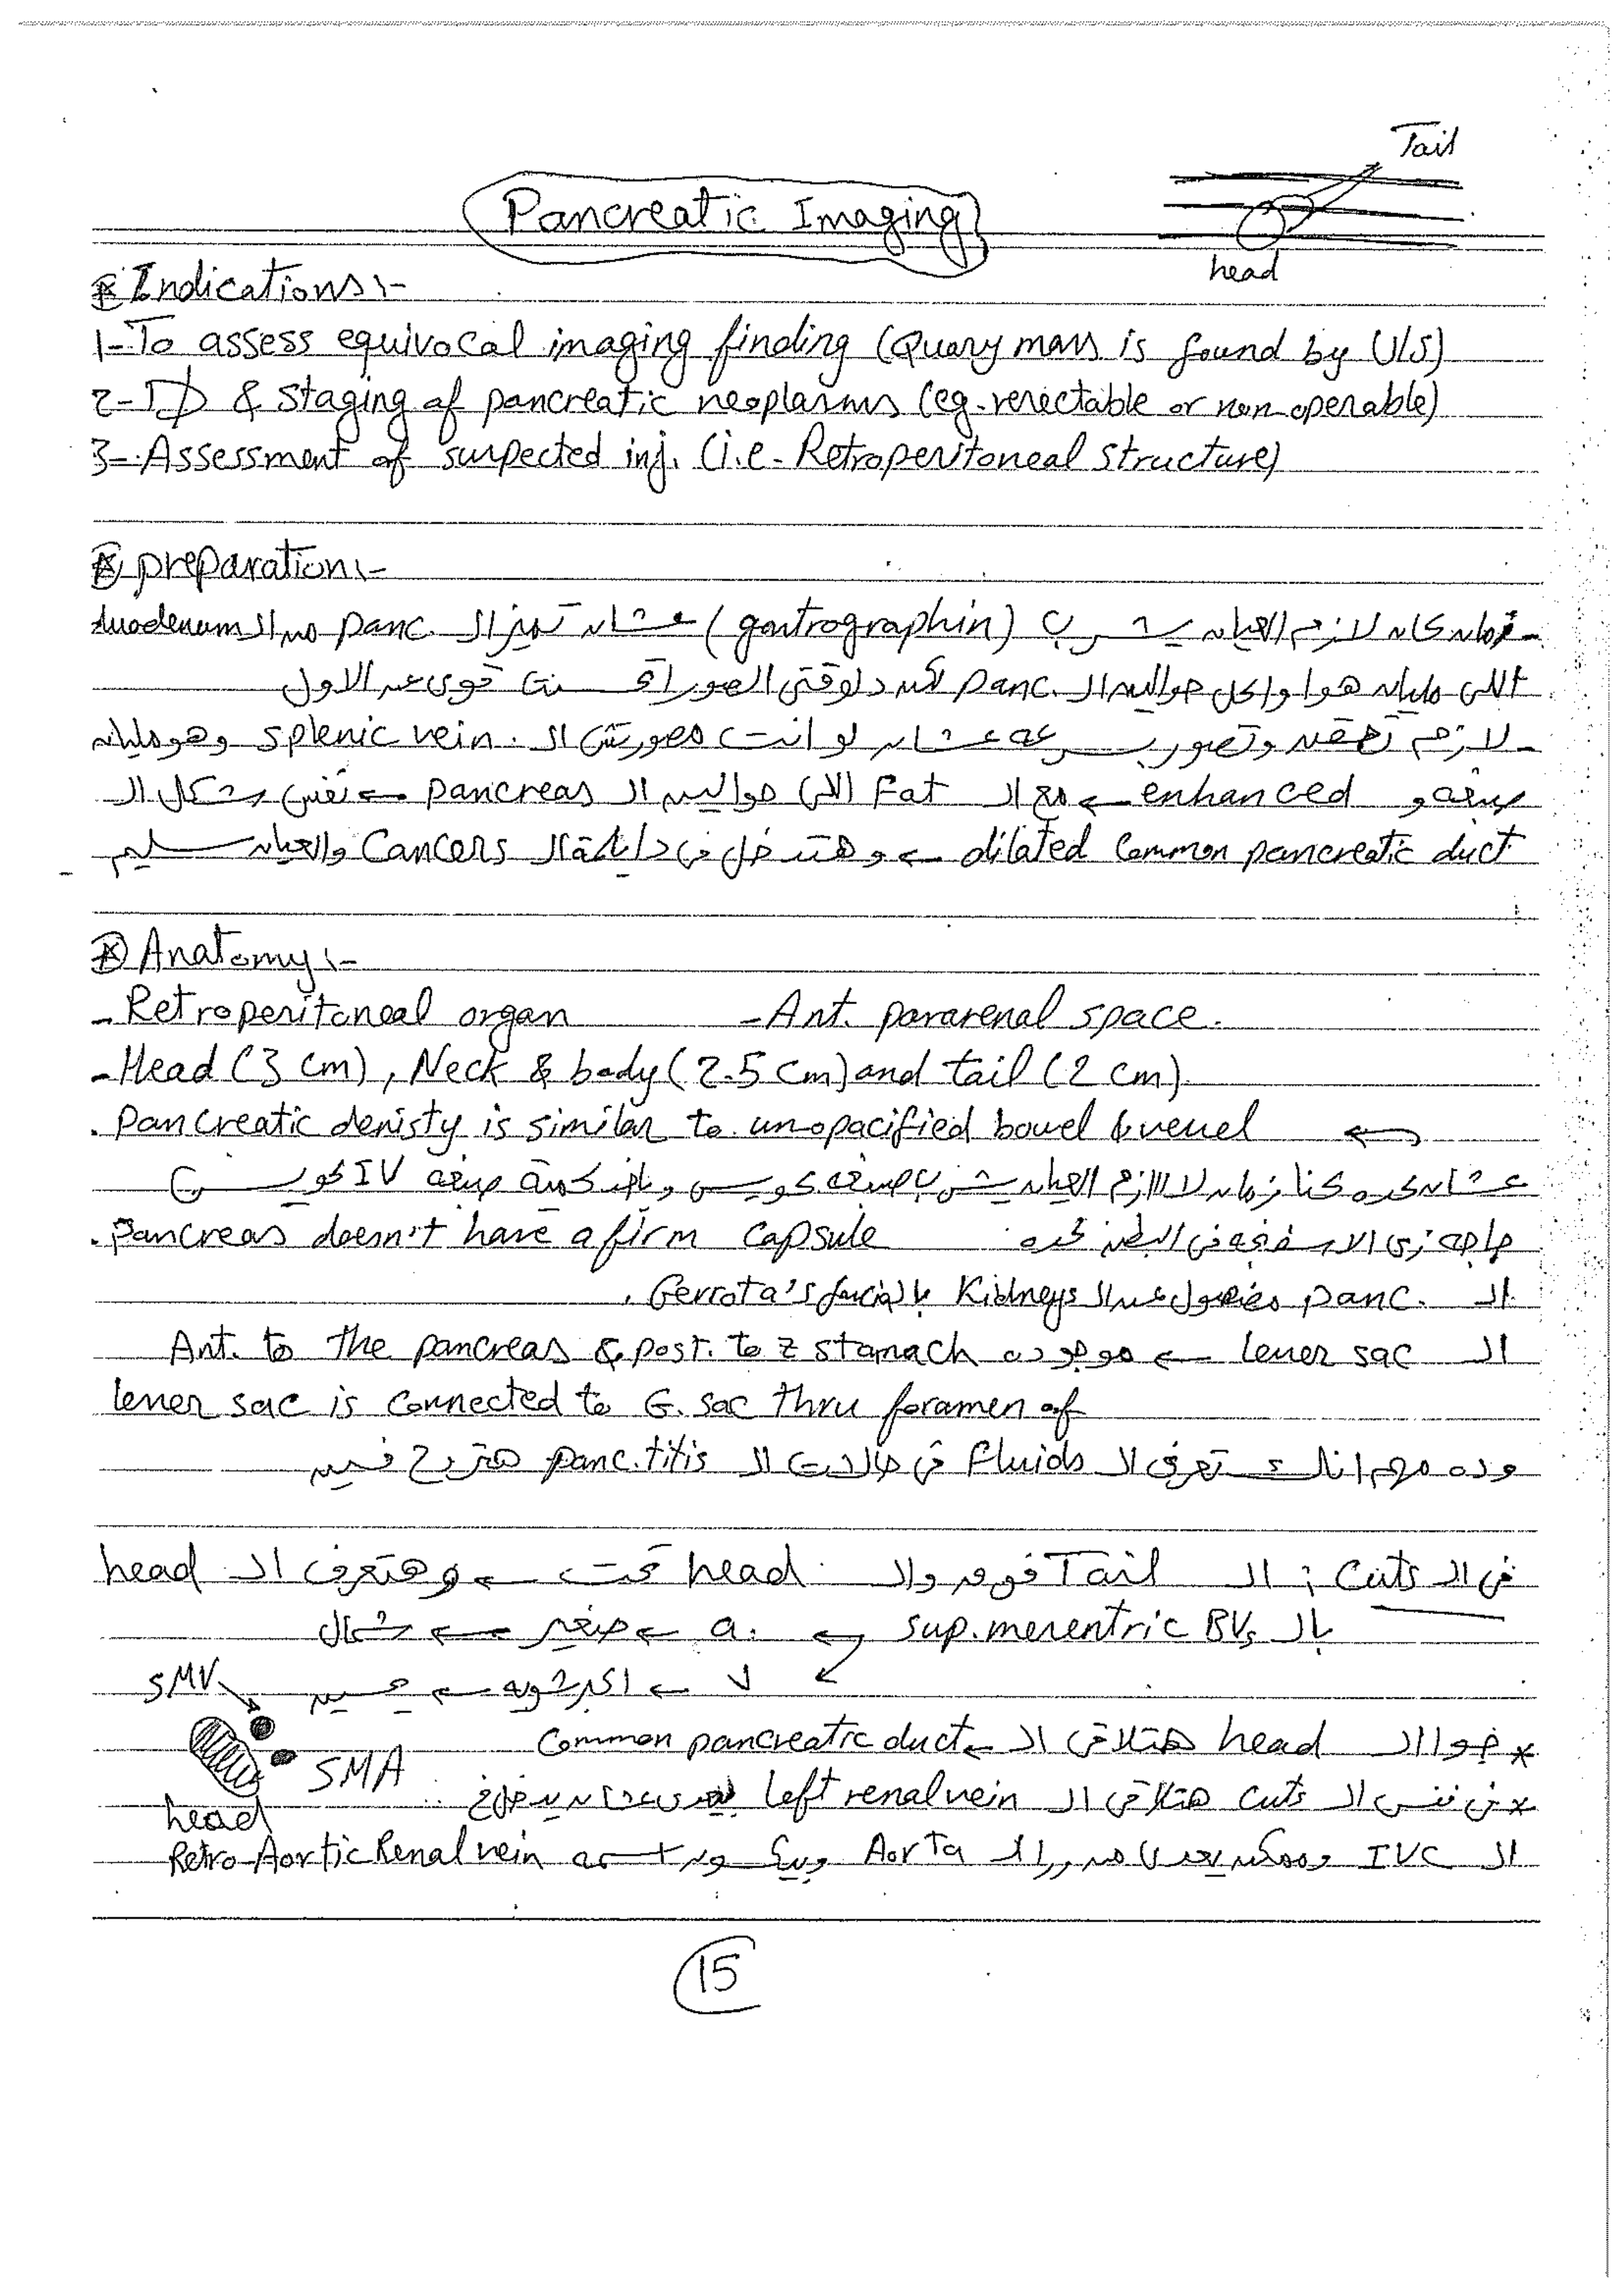 Tail
Pancreatic Imaging
head
Indications:-
1- To assess equivocal imaging finding (Quary mass is found by U/S)
2- D & staging of pancreatic neoplasms (eg. resectable or non operable)
3- Assessment of suspected inj. (i.e. Retroperitoneal structure)
preparation:-
- زمان كان لازم العيان يشرب (gastrographin) عشان تميز ال panc. من ال duodenum
اللي مليان هوا واكل حوالين ال panc. لكن دلوقتي الصور اتحسنت قوي عن الاول
- لازم تحقن وتصور بسرعة عشان لو انت مصورتش ال splenic vein وهو مليان
صبغة و enhanced ← مع ال Fat اللي حوالين ال pancreas ← نفس شكل ال
dilated common pancreatic duct ← وهتدخل في دايلة ال Cancers والعيان سليم
Anatomy:-
- Retroperitoneal organ - Ant. pararenal space.
- Head (3 cm), Neck & body (2.5 cm) and tail (2 cm)
. Pancreatic denisty is similar to unopacified bowel & vessel ←
عشان كده كنا زمان لازم العيان يشرب صبغة كويس و ياخد كمية صبغة IV كويسة
. Pancreas doesn't have a firm capsule حاجه زي الاسفنجه في البطن كده
ال panc. مفصول عن ال Kidneys بال Gerrota's fascia.
ال lesser sac ← موجوده Ant. to the pancreas & post. to z stomach
lesser sac is connected to G. sac thru foramen of
وده مهم انك تعرفي ال fluids في حالات ال panc.titis هتروح فين
في ال cuts : ال Tail فوق وال head تحت ← وهتعرف ال head
بال sup. mesentric BVs ← a. ← صغير ← شمال
v ← اكبر شويه ← يمين
SMV
SMA
head
* جوا ال head هتلاقي ال ← common pancreatic duct
* في نفس ال cuts هتلاقي ال left renal vein بيعدي عشان يدخل
ال IVC وممكن يعدي من ورا ال Aorta ويكون اسمه Retro-Aortic Renal vein
15